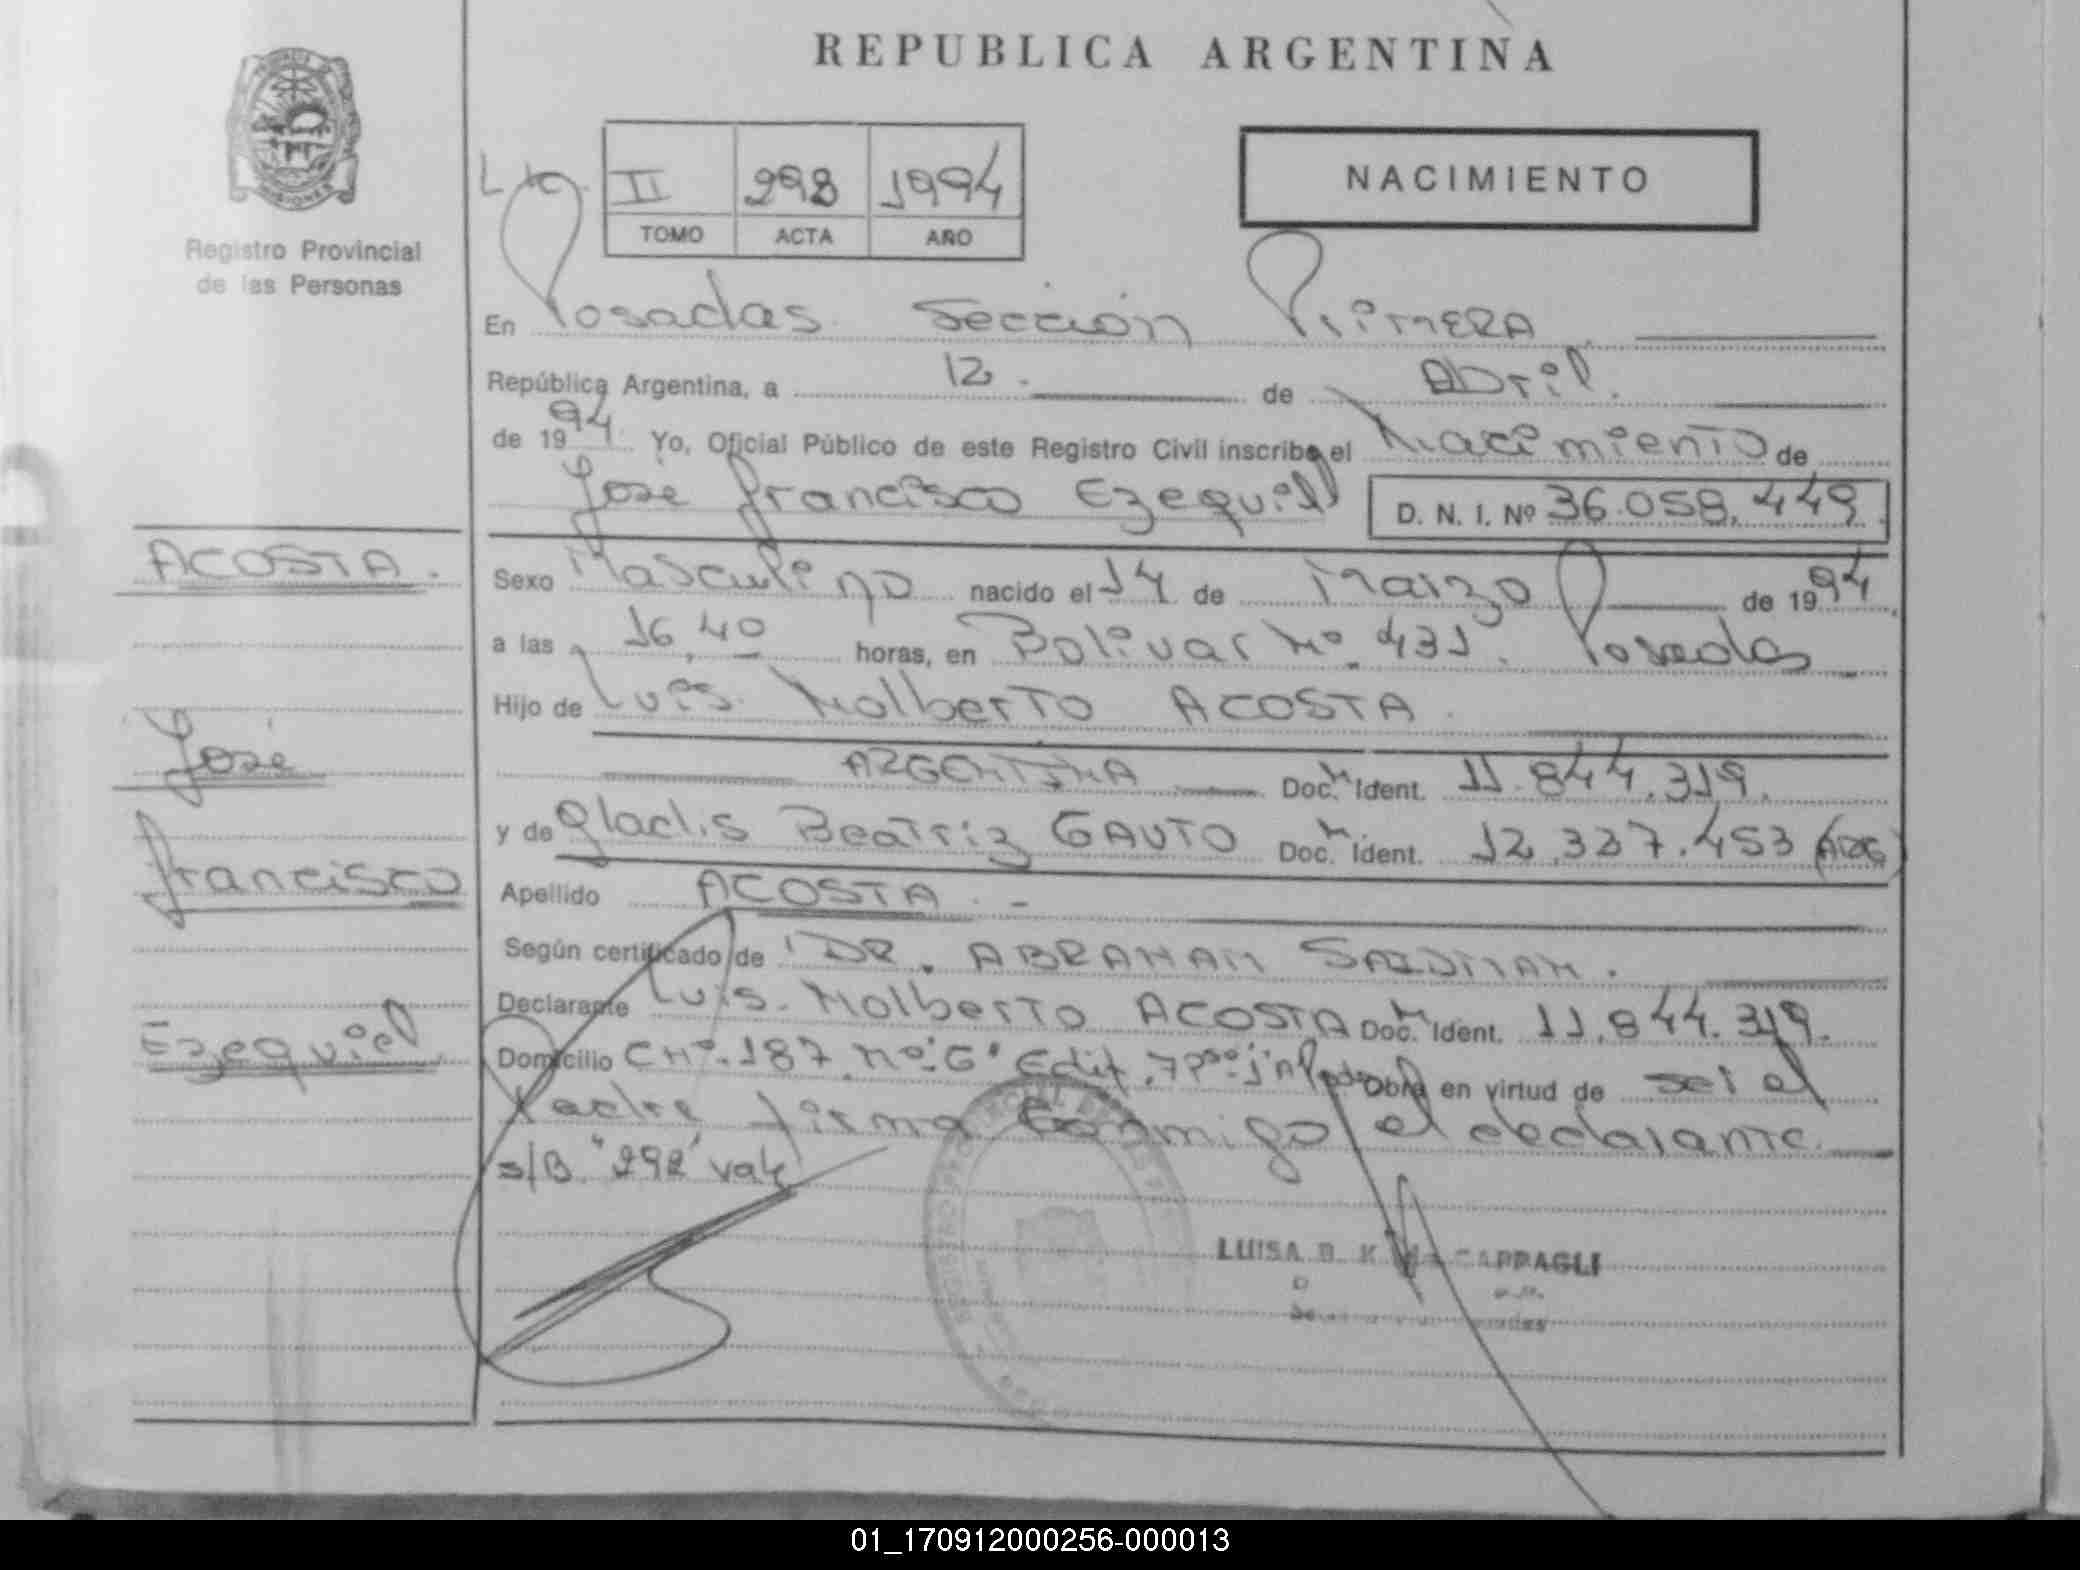 REPUBLICA ARGENTINA
II 298 1994
TOMO ACTA AÑO
NACIMIENTO
Registro Provincial
de las Personas
En Posadas Sección PRIMERA
República Argentina, a 12 de Abril
de 1994 Yo, Oficial Público de este Registro Civil inscribo el Nacimiento de
José Francisco Ezequiel D. N. I. Nº 36.058.449
ACOSTA
José
Francisco
Ezequiel
Sexo Masculino nacido el 14 de Marzo de 1994
a las 16,40 horas, en Bolivar Nº 431. Posadas
Hijo de Luis Nolberto ACOSTA
ARGENTINA Doc. Ident. 11.844.319.
y de Gladis Beatriz GAUTO Doc. Ident. 12.337.453 (ARG)
Apellido ACOSTA. -
Según certificado de DR. ABRAHAM SAIDMAN.
Declarante Luis Nolberto ACOSTA Doc. Ident. 11.844.319.
Domicilio CHº.187.Nº"G" Edif.7 Obra en virtud de ser el
Padre firma Conmigo el declarante.
s/B. "298" vale
LUISA CAPPAGLI
01_170912000256-000013